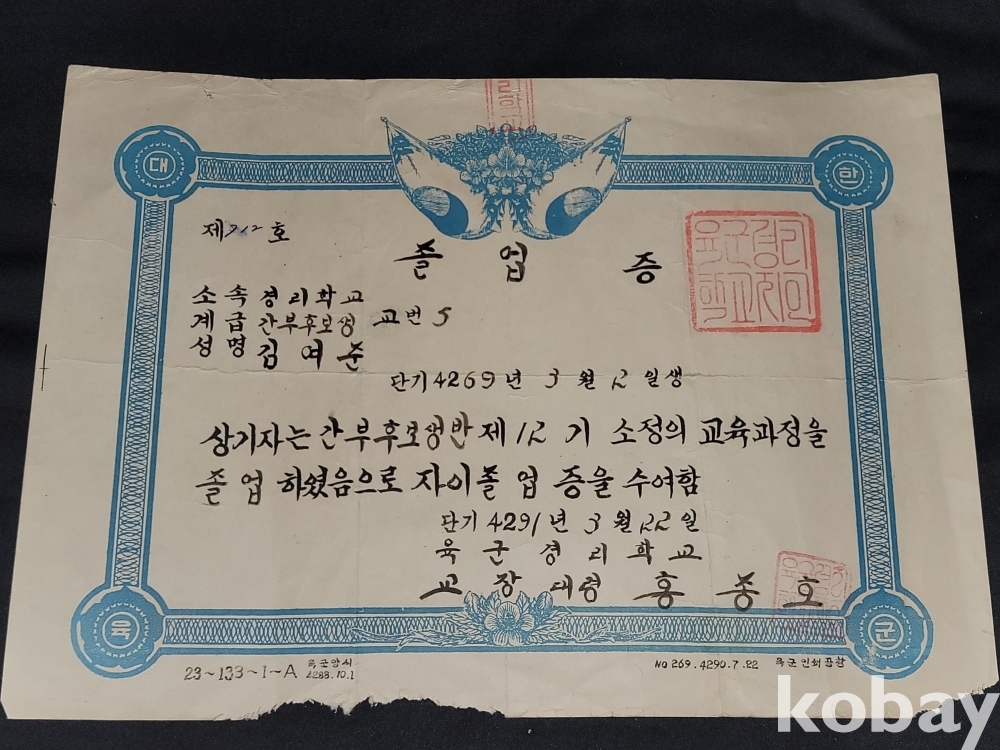 대 한
제712호
졸 업 증
소속 경리학교
계급 간부후보생 교번 5
성명 김여준
단기 4269년 3월 12일생
상기자는 간부후보생반 제12기 소정의 교육과정을
졸업하였음으로 자이졸업증을 수여함
단기 4291년 3월 22일
육군경리학교
교장 대령 홍종호
육 군
23~133~1~A 육군양식 4288.10.1
NO 269.4290.7.22 육군인쇄공창
kobay